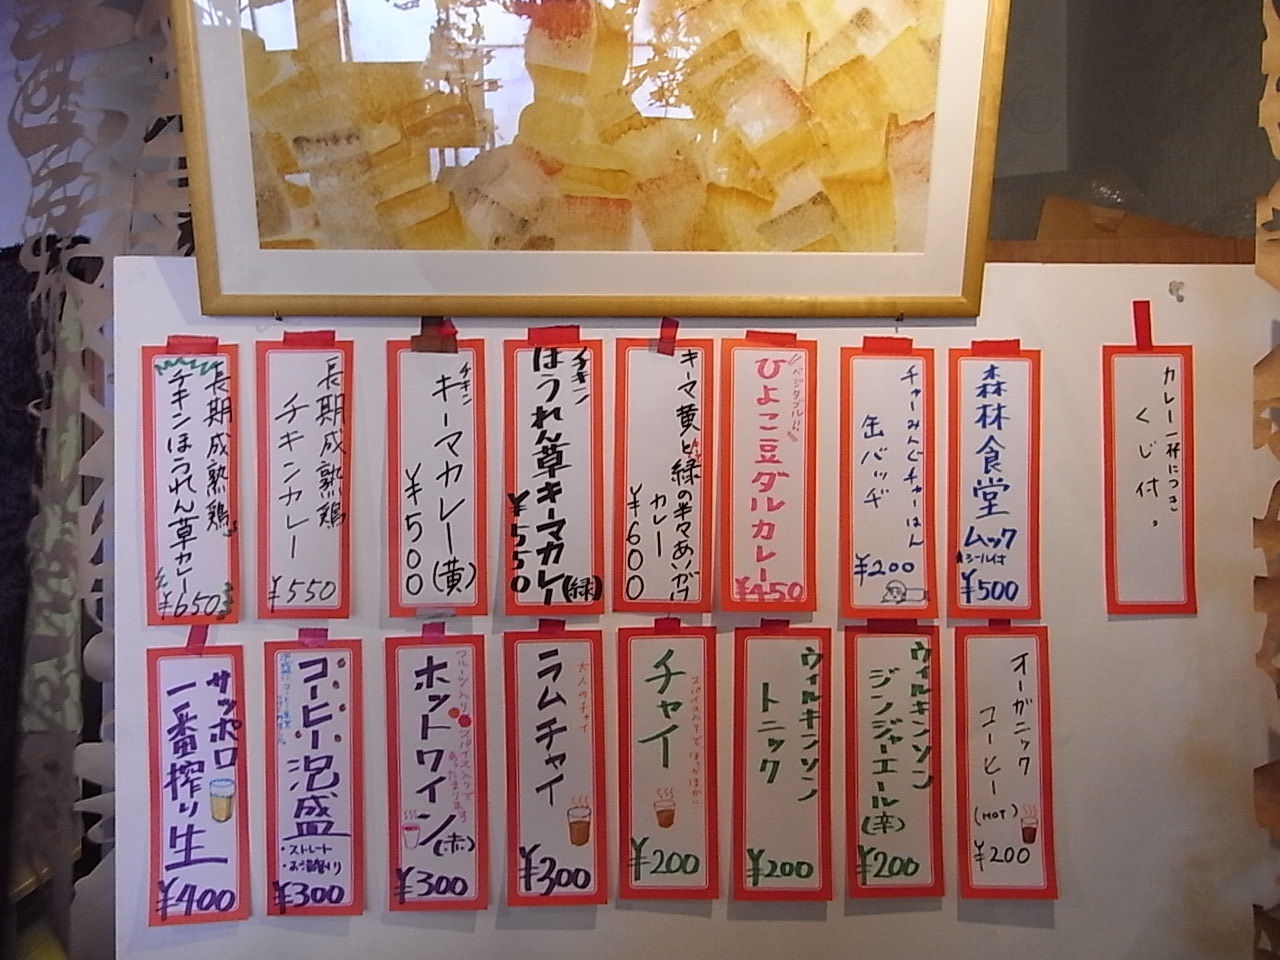 カレー一杯につき
くじ付。
森林食堂
ムック
シール付
¥500
チャーみんぐチャーはん
缶バッヂ
¥200
ベジタブル!!
ひよこ豆ダルカレー
¥450
キーマ黄と緑の半々あいがけ
カレー
¥600
チキン
ほうれん草キーマカレー(緑)
¥550
チキン
キーマカレー(黄)
¥500
長期成熟鶏
チキンカレー
¥550
長期成熟鶏
チキンほうれん草カレー
¥650
オーガニック
コーヒー
(HOT)
¥200
ウィルキンソン
ジンジャーエール(辛)
¥200
ウィルキンソン
トニック
¥200
チャイ
スパイス入りでぽっかぽか
¥200
大人のチャイ
ラムチャイ
¥300
フルーツ入り
スパイス入りで
あったまります
ホットワイン(赤)
¥300
コーヒー泡盛
・ストレート
・お湯割り
¥300
サッポロ
一番搾り生
¥400